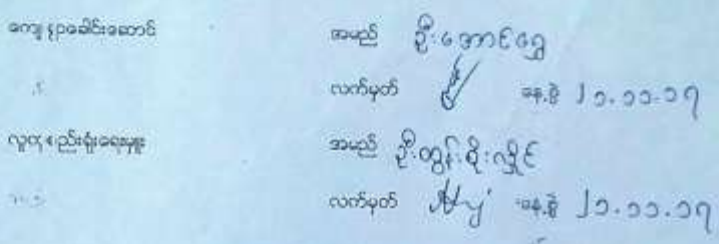 ကျေးရွာခေါင်းဆောင် အမည် ဦးအောင်ရွှေ
လက်မှတ် နေ့စွဲ ၂၁.၁၁.၁၇
လူထုစည်းရုံးရေးမှူး အမည် ဦးထွန်းစိုးလှိုင်
လက်မှတ် နေ့စွဲ ၂၁.၁၁.၁၇